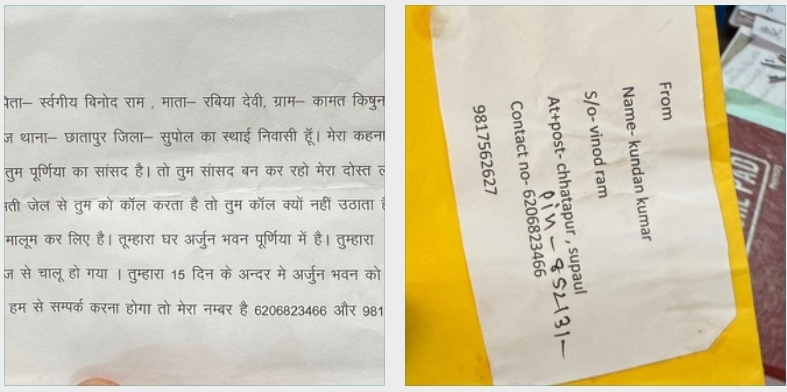 पिता– र्स्वगीय बिनोद राम , माता– रबिया देवी, ग्राम– कामत किषुन
ज थाना– छातापुर जिला– सुपोल का स्थाई निवासी हूँ। मेरा कहना
तुम पूर्णिया का सांसद है। तो तुम सांसद बन कर रहो मेरा दोस्त ल
ती जेल से तुम को कॉल करता है तो तुम कॉल क्यों नहीं उठाता है
मालूम कर लिए है। तूम्हारा घर अर्जुन भवन पूर्णिया में है। तुम्हारा
ज से चालू हो गया । तुम्हारा 15 दिन के अन्दर मे अर्जुन भवन को
हम से सम्पर्क करना होगा तो मेरा नम्बर है 6206823466 और 981
From
Name- kundan kumar
S/o- vinod ram
At+post- chhatapur , supaul
pin – 852131–
Contact no- 6206823466
9817562627